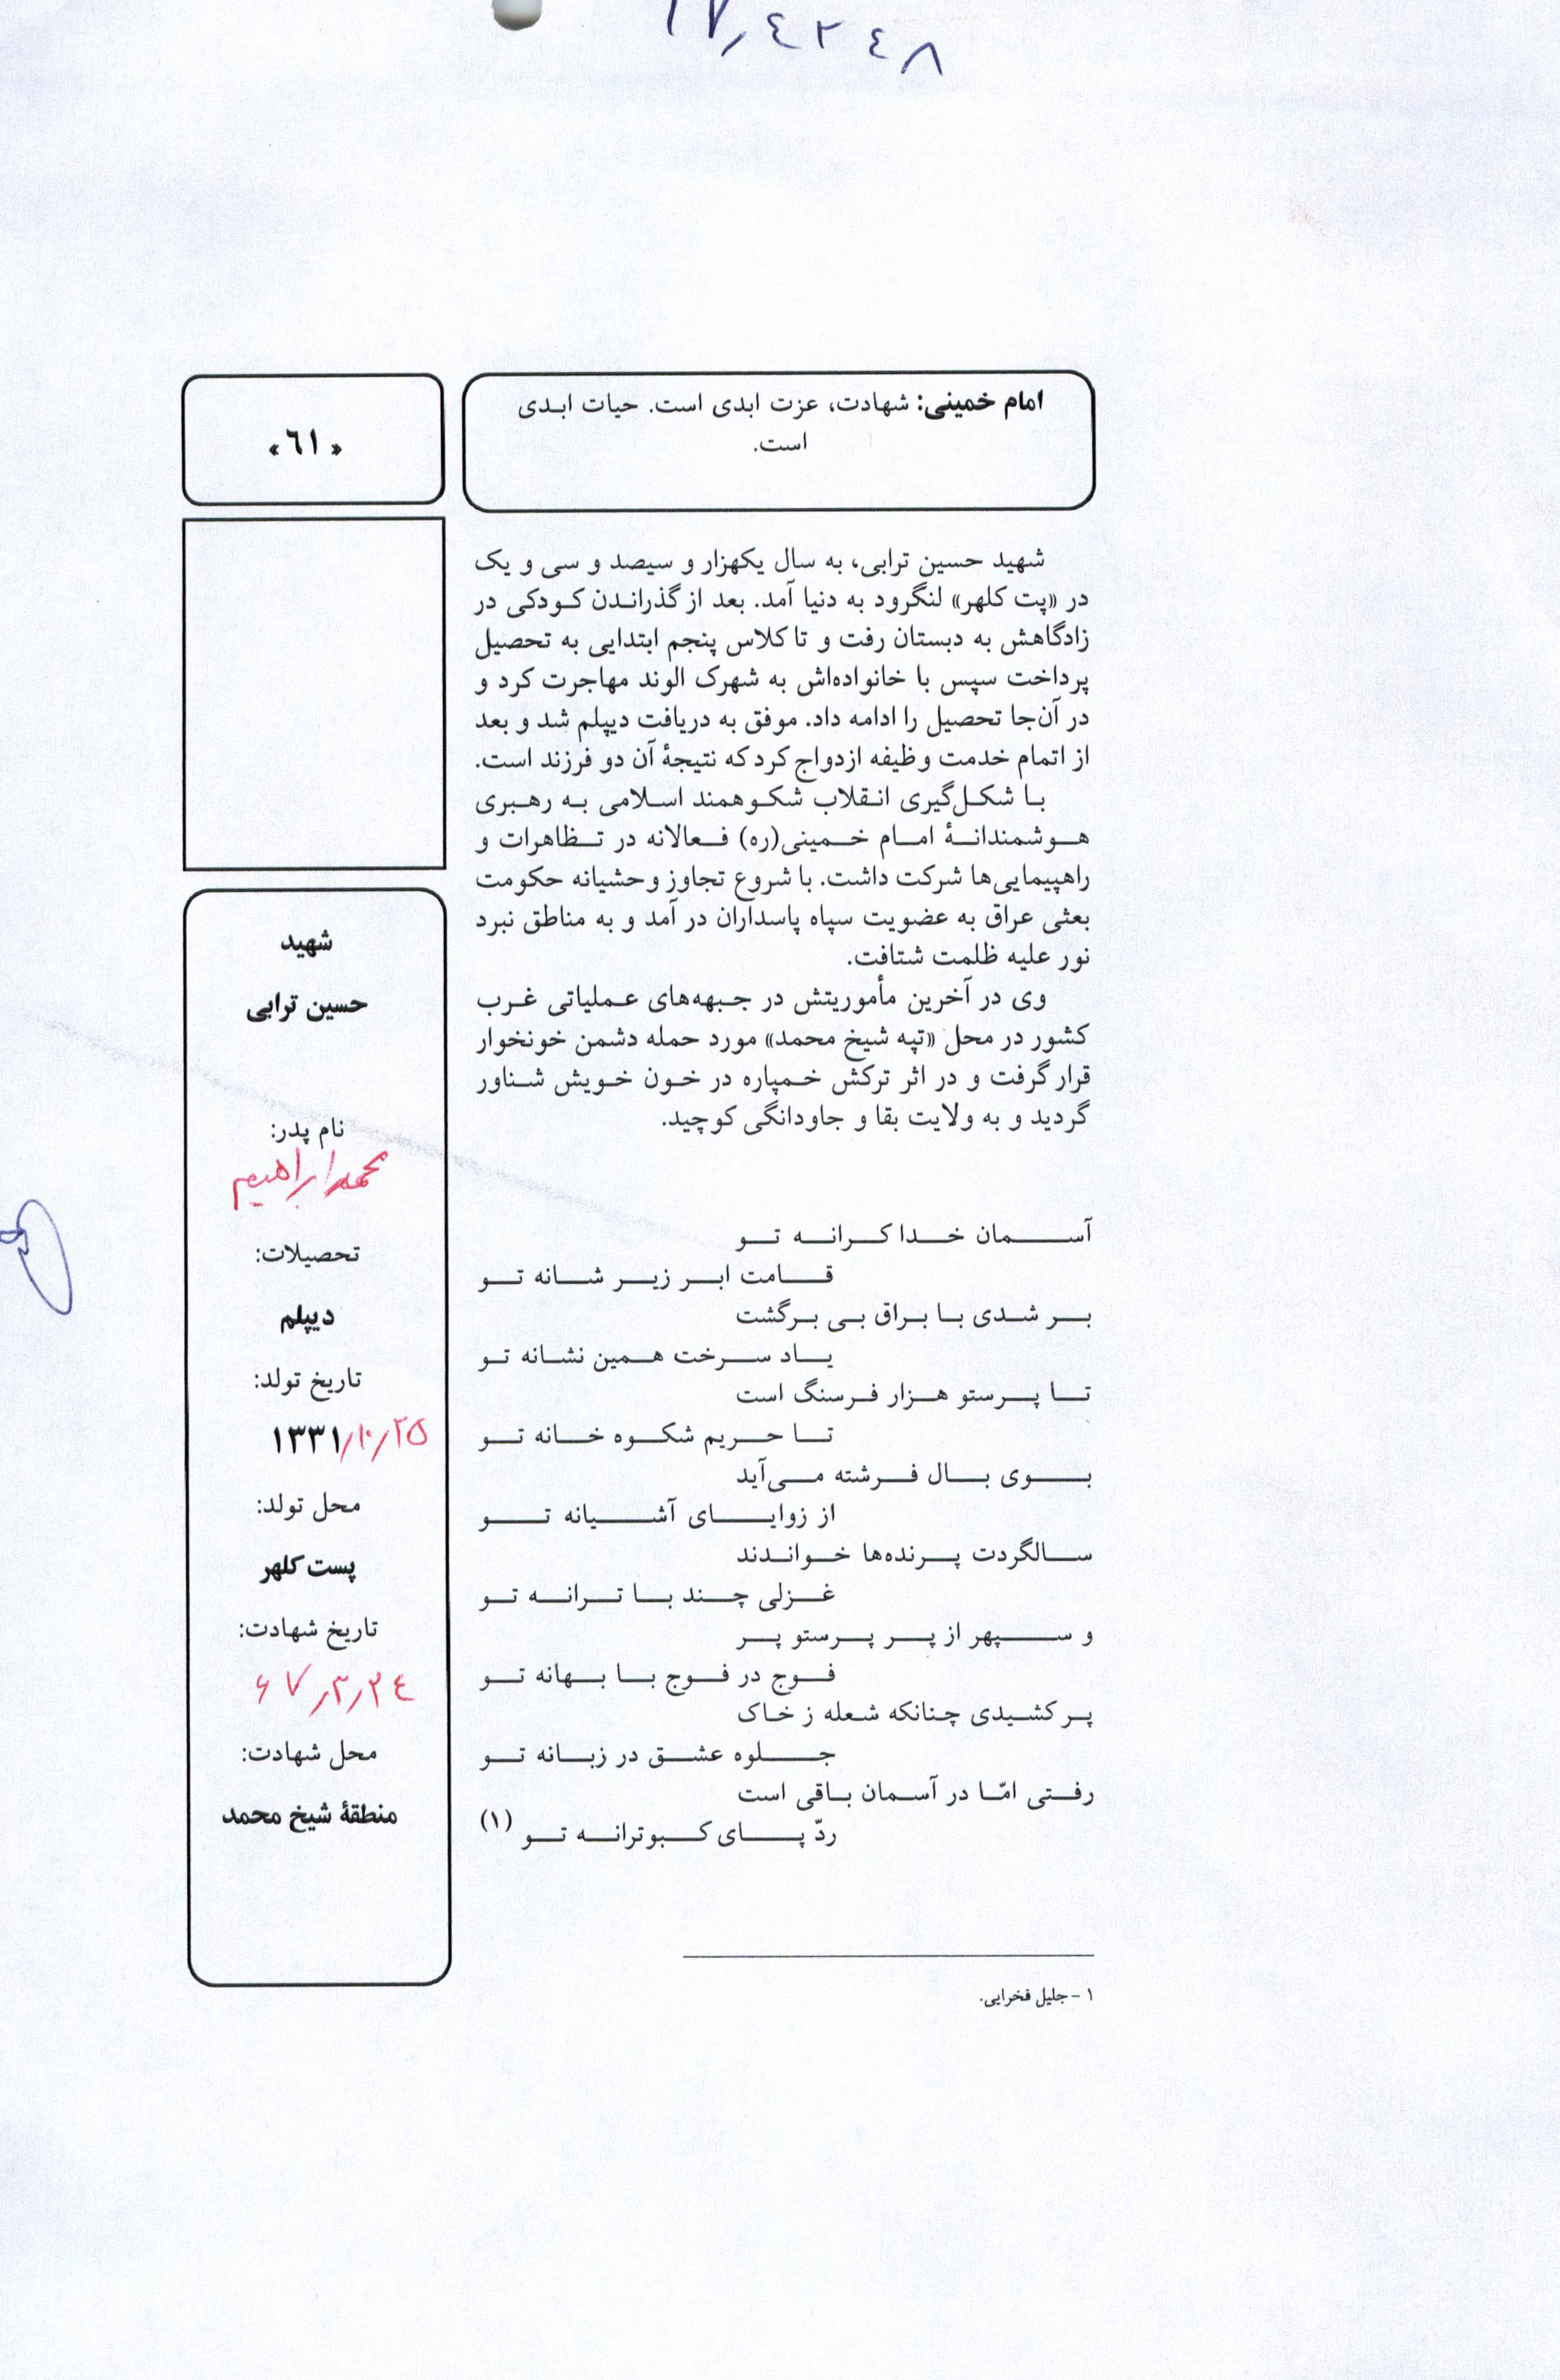 امام خمینی: شهادت، عزت ابدی است. حیات ابدی
است.
« ٦١ »
شهید حسین ترابی، به سال یکهزار و سیصد و سی و یک
در «پت کلهر» لنگرود به دنیا آمد. بعد از گذراندن کودکی در
زادگاهش به دبستان رفت و تا کلاس پنجم ابتدایی به تحصیل
پرداخت سپس با خانواده‌اش به شهرک الوند مهاجرت کرد و
در آن‌جا تحصیل را ادامه داد. موفق به دریافت دیپلم شد و بعد
از اتمام خدمت وظیفه ازدواج کرد که نتیجهٔ آن دو فرزند است.
با شکل‌گیری انقلاب شکوهمند اسلامی به رهبری
هوشمندانهٔ امام خمینی(ره) فعالانه در تظاهرات و
راهپیمایی‌ها شرکت داشت. با شروع تجاوز وحشیانه حکومت
بعثی عراق به عضویت سپاه پاسداران در آمد و به مناطق نبرد
نور علیه ظلمت شتافت.
وی در آخرین مأموریتش در جبهه‌های عملیاتی غرب
کشور در محل «تپه شیخ محمد» مورد حمله دشمن خونخوار
قرار گرفت و در اثر ترکش خمپاره در خون خویش شناور
گردید و به ولایت بقا و جاودانگی کوچید.
آسمان خدا کرانه تو
قامت ابر زیر شانه تو
بر شدی با براق بی برگشت
یاد سرخت همین نشانه تو
تا پرستو هزار فرسنگ است
تا حریم شکوه خانه تو
بوی بال فرشته می‌آید
از زوایای آشیانه تو
سالگردت پرنده‌ها خواندند
غزلی چند با ترانه تو
و سپهر از پر پرستو پر
فوج در فوج با بهانه تو
پر کشیدی چنانکه شعله ز خاک
جلوه عشق در زبانه تو
رفتی امّا در آسمان باقی است
ردّ پای کبوترانه تو (۱)
۱ - جلیل فخرایی.
شهید
حسین ترابی
نام پدر:
محمدابراهیم
تحصیلات:
دیپلم
تاریخ تولد:
۱۳۳۱/۱۰/۲۵
محل تولد:
پست کلهر
تاریخ شهادت:
۶۷/۳/۲٤
محل شهادت:
منطقهٔ شیخ محمد